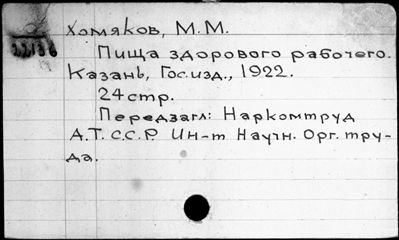 Хомяков, М.М.
22136
Пища здорового рабочего.
Казань, Гос.изд., 1922.
24стр.
Передзагл: Наркомтруд
А.Т.С.С.Р. Ин-т Научн. Орг. тру-
да.